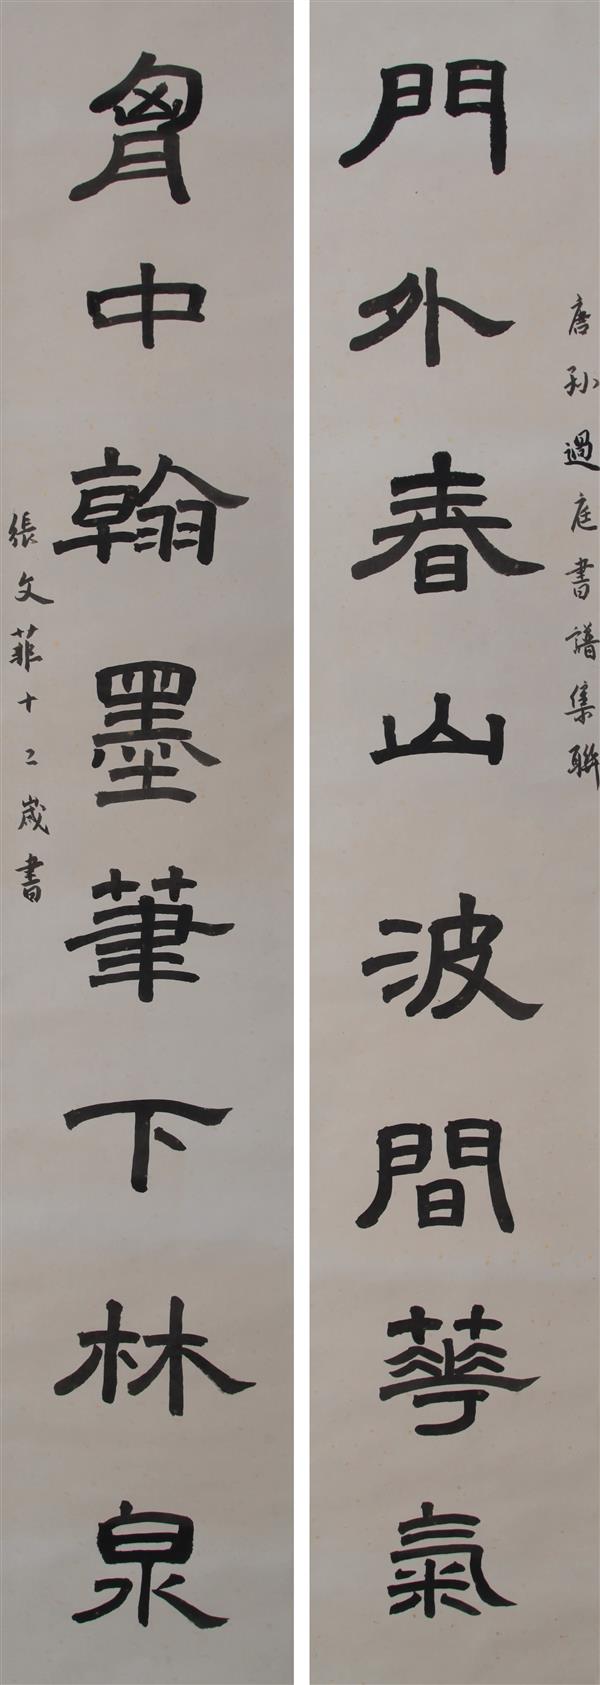 唐孫過庭書譜集聯
門外春山波間華氣
胷中翰墨筆下林泉
張文菲十二歲書